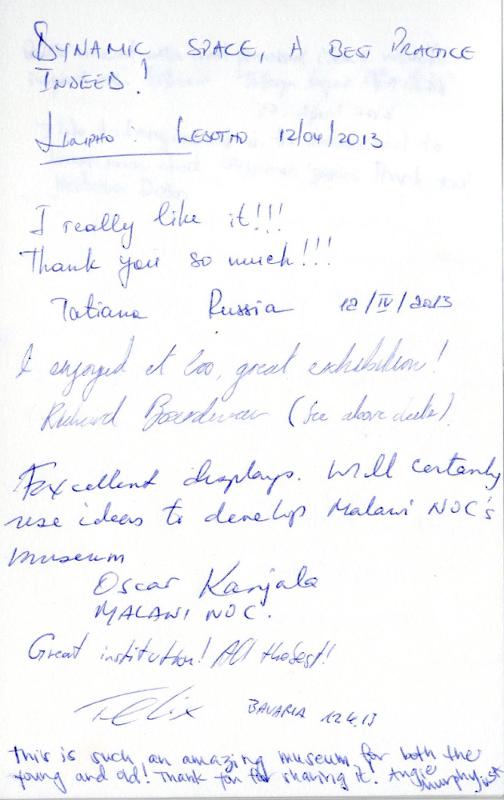 DYNAMIC SPACE, A BEST PRACTICE
INDEED!
LESOTHO 12/04/2013
I really like it!!!
Thank you so much!!!
Tatiana Russia 12/IV/2013
I enjoyed it too, great exhibition!
Richard Boardman (See above date).
Excellent displays. Will certainly
use ideas to develop Malawi NOC's
museum
Oscar Kanjala
MALAWI NOC.
Great institution! All the best!
Felix BAVARIA 12.4.13
This is such an amazing museum for both the
young and old! Thank you for sharing it! Angie
Murphy